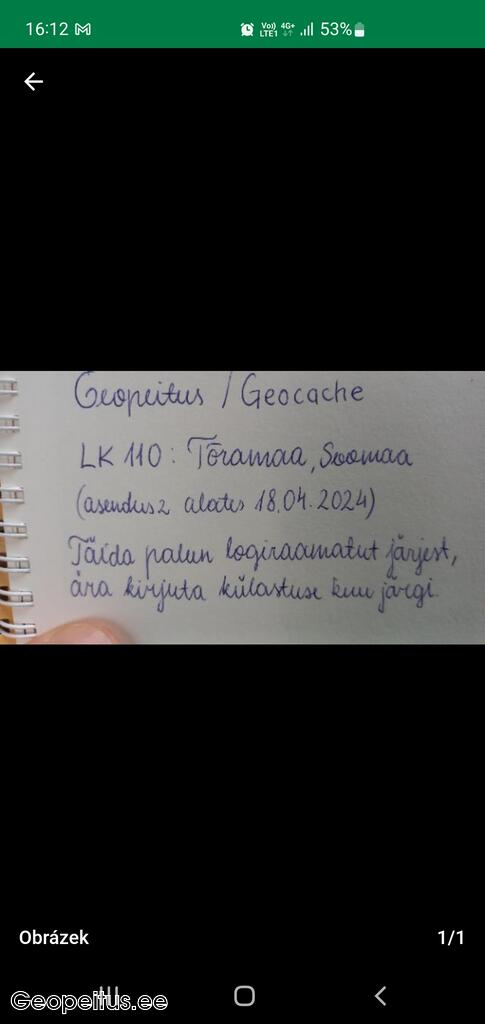 16:12
Vo)) LTE1 4G+ 53%
Geopeitus / Geocache
LK 110: Tõramaa, Soomaa
(asendus 2 alates 18.04.2024)
Täida palun logiraamatut järjest,
ära kirjuta külastuse kuu järgi.
Obrázek 1/1
Geopeitus.ee